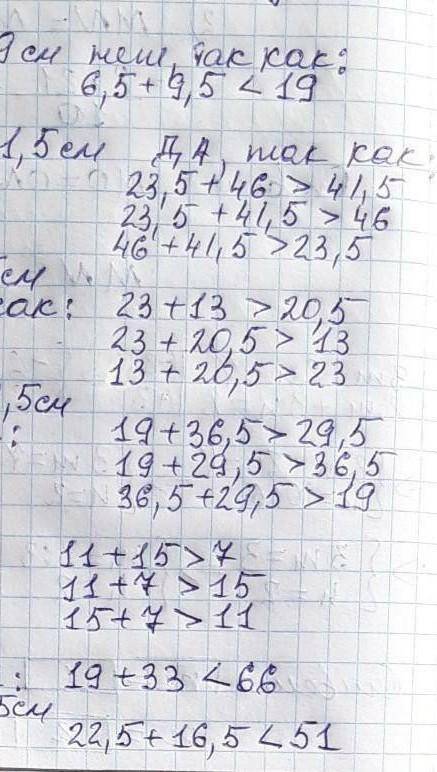 9 см нет, так как:
6,5 + 9,5 < 19
1,5 см ДА, так как:
23,5 + 46 > 41,5
23,5 + 41,5 > 46
46 + 41,5 > 23,5
см
как: 23 + 13 > 20,5
23 + 20,5 > 13
13 + 20,5 > 23
,5 см
: 19 + 36,5 > 29,5
19 + 29,5 > 36,5
36,5 + 29,5 > 19
11 + 15 > 7
11 + 7 > 15
15 + 7 > 11
: 19 + 33 < 66
5 см
22,5 + 16,5 < 51